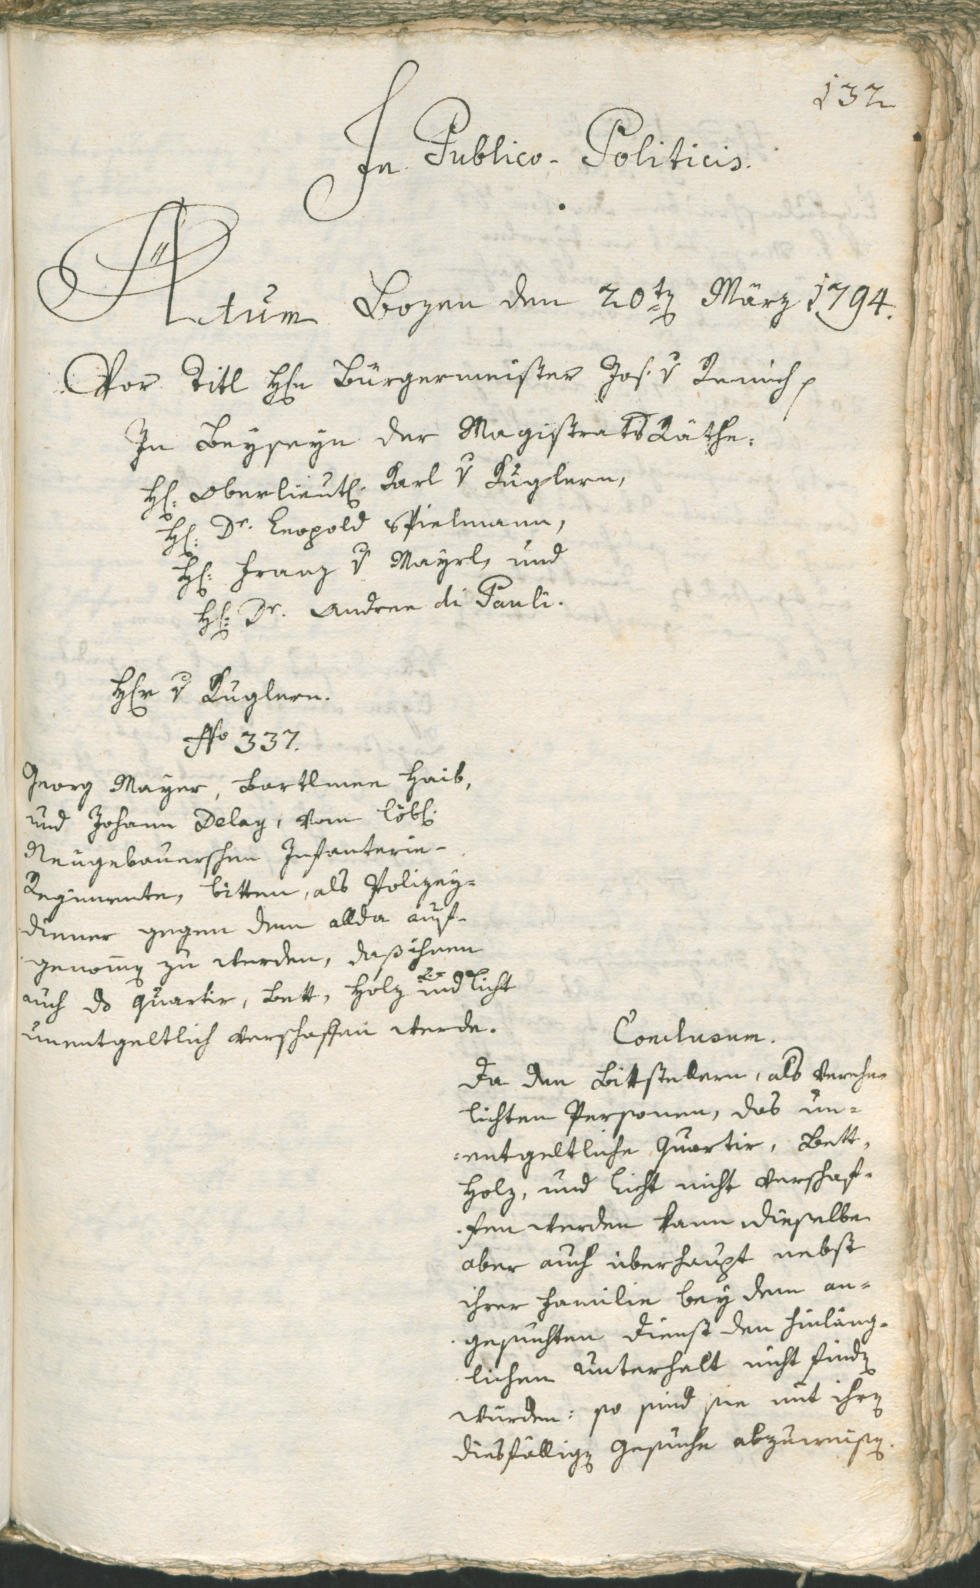 132
In Publico-Politicis.
Actum Bozen den 20tz März 1794.
Vor Titl Hℓn Bürgermeister Jos. v Remich
In Beyseyn der MagistratsRäthe.
Hℓ: Oberlieutℓ. Karl v Kuglern,
Hℓ: Dr. Leopold Spielmann,
Hℓ: Franz v Mayrl, und
Hℓ: Dr. Andree di Pauli.
Hℓr v Kuglern.
No 337.
Georg Mayer, Bartlmee Haib,
und Johann Delag, vom löbℓ:
Neugebauerschen Infanterie-
Regimente, bitten, als Polizey=
diener gegen dem allda auf-
genomen zu werden, daß ihnen
auch das Quartir, Bett, Holz und Licht
unentgeltlich verschaffen werde.
Conclusum.
Da den Bittstellern, als verehe=
lichten Personen, das un=
=entgeltliche Quartir, Bett,
Holz, und Licht nicht verschaf-
fen werden kann dieselbe
aber auch überhaupt nebst
ihrer Familie bey dem an=
gesuchten Dienst den hinläng-
lichen Unterhalt nicht finden
würden: so sind sie mit ihren
diesfälligen Gesuche abzuweisen.